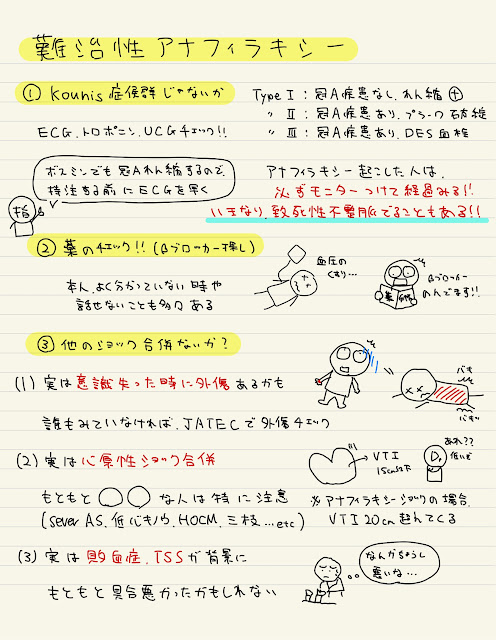 難治性アナフィラキシー
① Kounis 症候群じゃないか
Type Ⅰ : 冠A疾患なし, れん縮 ⊕
〃 Ⅱ : 冠A疾患あり, プラーク破綻
〃 Ⅲ : 冠A疾患あり, DES血栓
ECG, トロポニン, UCGチェック!!
ボスミンでも冠Aれん縮するので,
持注する前にECGを早く
指
アナフィラキシー起こした人は,
必ずモニターつけて経過みる!!
いきなり, 致死性不整脈でることもある!!
② 薬のチェック!! (βブロッカー探し)
本人, よく分かっていない時や
話せないことも多々ある
血圧の
くすり…
βブロッカー
のんでます!!
薬
③ 他のショック合併ないか?
(1) 実は意識失った時に外傷あるかも
誰もみていなければ, JATECで外傷チェック
バキ
バキッ
(2) 実は心原性ショック合併
もともと○○な人は特に注意
(sever AS, 低心キノウ, HOCM, 三枝…etc)
VTI
15cm以下
あれ??
低いぞ
Dr
※アナフィラキシーショックの場合,
VTI 20cm超えてくる
(3) 実は敗血症, TSSが背景に
もともと具合悪かったかもしれない
なんかちょうし
悪いな…